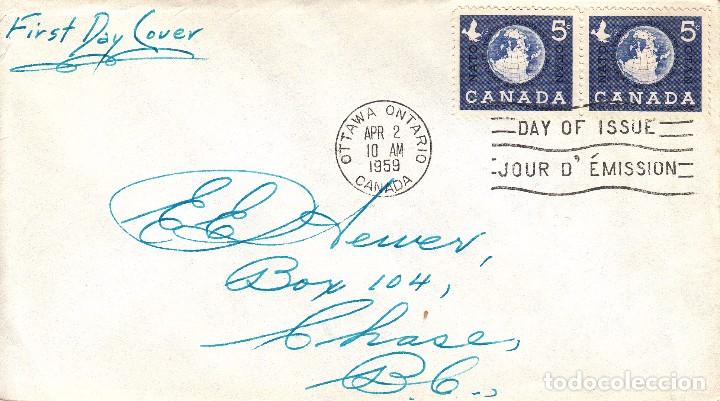 First Day Cover
5¢ 5¢
NATO OTAN NATO OTAN
CANADA CANADA
OTTAWA ONTARIO
APR 2
10 AM
1959
CANADA
DAY OF ISSUE
JOUR D' ÉMISSION
E E
Box 104,
Chase,
B.C.,
todocoleccion